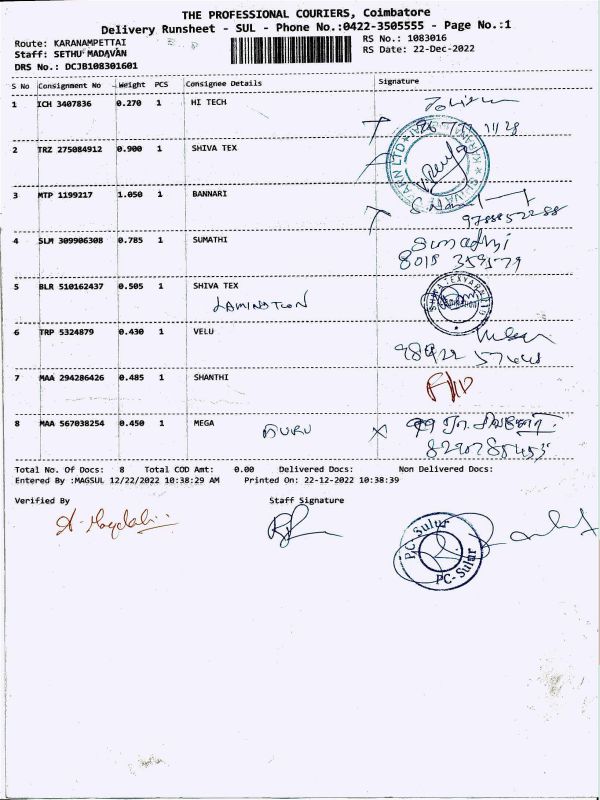 THE PROFESSIONAL COURIERS, Coimbatore
Delivery Runsheet - SUL - Phone No.:0422-3505555 - Page No.:1
Route: KARANAMPETTAI
RS No.: 1083016
Staff: SETHU MADAVAN
RS Date: 22-Dec-2022
DRS No.: DCJB108301601
S No Consignment No Weight PCS Consignee Details Signature
1 ICH 3407836 0.270 1 HI TECH
2 TRZ 275084912 0.900 1 SHIVA TEX
3 MTP 1199217 1.050 1 BANNARI
4 SLM 309906308 0.785 1 SUMATHI
Sumathi
8015 359579
5 BLR 510162437 0.505 1 SHIVA TEX
LAMINATION
6 TRP 5324879 0.430 1 VELU
7 MAA 294286426 0.485 1 SHANTHI
8 MAA 567038254 0.450 1 MEGA
GURU
Total No. Of Docs: 8 Total COD Amt: 0.00 Delivered Docs: Non Delivered Docs:
Entered By :MAGSUL 12/22/2022 10:38:29 AM Printed On: 22-12-2022 10:38:39
Verified By Staff Signature
PC-Sulur
PC-Sulur